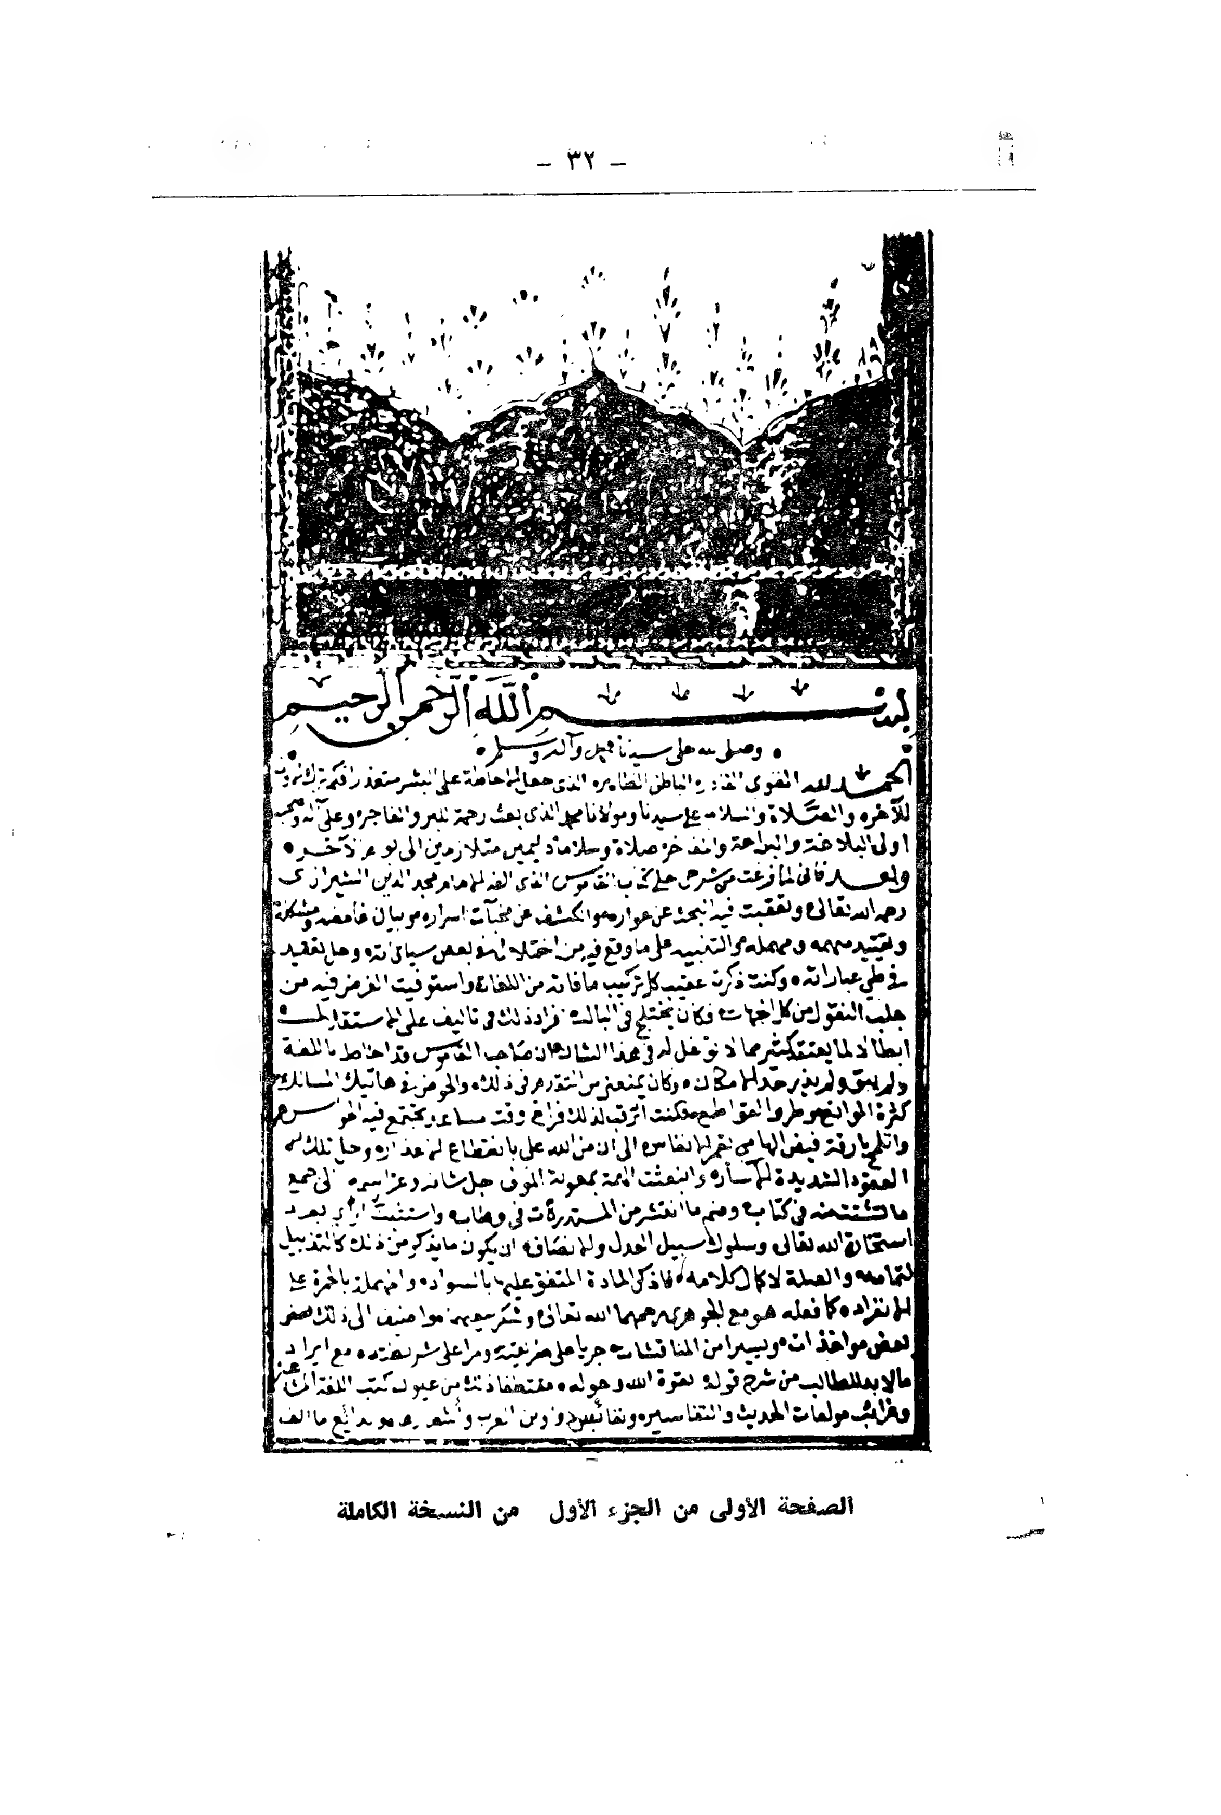 - ٣٢ -
بسم الله الرحمن الرحيم
وصلى الله على سيدنا محمد وآله وسلم
الحمد لله القوى القادر الباطن الظاهر الذى جعل الاحاطة على البشر متعذرا
للآخر والصلاة والسلام على سيدنا ومولانا محمد الذى بعث رحمة للبر والفاجر وعلى آله وصحبه
اولى البلاغة والبراعة والمفاخر صلاة وسلاما دايمين متلازمين الى يوم الآخر
وبعد فانى لما فرغت من شرحى على كتاب القاموس الذى الفه الامام مجد الدين الشيرازى
رحمه الله تعالى وتعقبت فيه البحث عن عواره والكشف عن مخبآت اسراره وبيان غامضه ومشكله
وتقييد مهمه ومهمله والتنبيه على ما وقع فيه من اختلال فى بعض سياقاته وحل تعقيد
فى طى عباراته وكنت ذكرت عقيب كل تركيب ما فاته من اللغات واستوفيت الغرض فيه من
جلب النقول من كل الجهات فكان يختلج فى البال افراد ذلك فى تاليف على استقلاله
ابطالا لما يعتقد كثير ممن لا توغل له فى هذا الشان ان صاحب القاموس قد احاط باللغة
ولم يبق ولم يذر حد الامكان وكان يمنعنى من التقدم فى ذلك والخوض فى هاتيك المسالك
كثرة الموانع والقواطع وكنت اترقب لذلك فراغ وقت مساعد يجتمع فيه الحواس
بارقة فيض الهامى الى ان من الله على بانقطاع وحل تلك
العقود الشديدة وانبعثت الهمة بمعونة الموفق جل شانه وعز اسمه الى جمع
ما تشتت منه فى كتاب وضم ما انتشر من المستدركات فى وطاب واستثبت الرأى بعد
استخارة الله تعالى وسلوك سبيل العدل والانصاف ان يكون ما يذكر من ذلك كالتذييل
لتمامه والصلة لاكمال كلامه فاذكر المادة المتفق عليها بالسواد وما اهمله بالحمرة على
الانفراد كما فعله هو مع الجوهرى رحمهما الله تعالى وشكر سعيهما مضيفا الى ذلك بعض
بعض مواخذات ويسيرا من المناقشات جريا على طريقته ومرا على شريعته مع ايراد
مالا بد للطالب من شرح قوله بقوة الله وحوله مقتطفا ذلك من عيون كتب اللغة
وغرائب مولفات الحديث والتفاسير ودواوين العرب واشعارها وبدائع ما الف
الصفحة الأولى من الجزء الأول من النسخة الكاملة